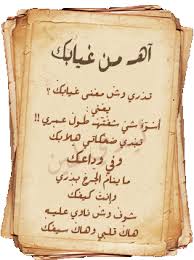 آهـ من غيابك
تدري وش معنى غيابك ؟
يعني :
أسوأ شي شفتهـ طول عمري !!
تدري ضحكاتي هلابك
وفي وداعك
ما ينام الجرح بدري
وأنت كيفك
شوف وش ناوي عليه
هاك قلبي وهاك سيفك